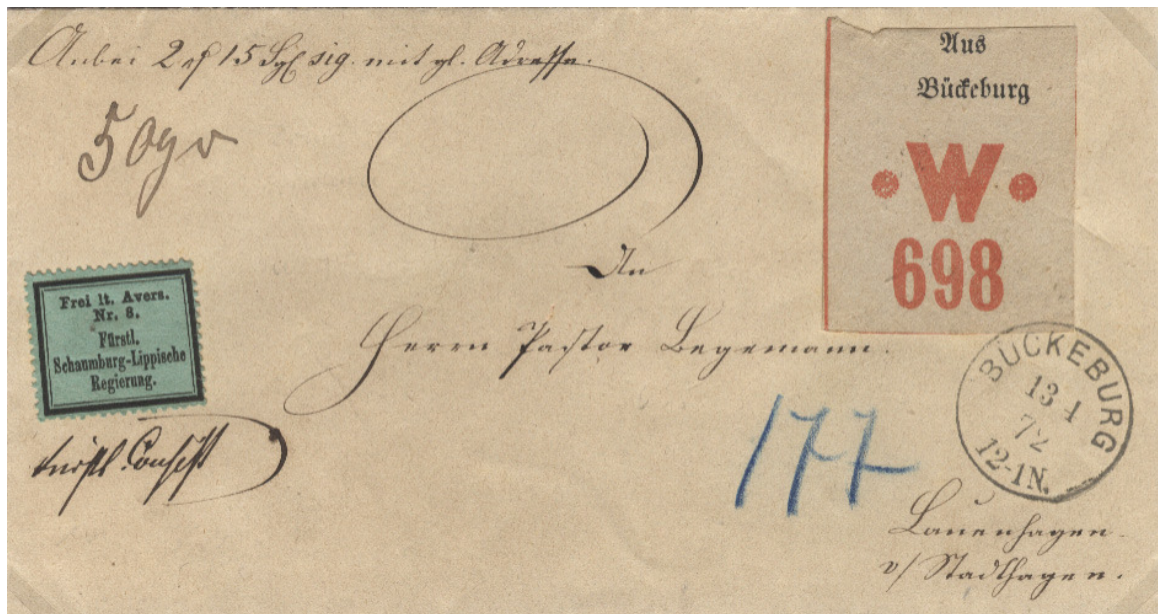 Anbei 2 rℓ 15 Sgl sig. mit gl. Adresse.
50gr
Aus
Bückeburg
W
698
Frei lt. Avers.
Nr. 8.
Fürstl.
Schaumburg-Lippische
Regierung.
An
Herrn Pastor Begemann.
177
BÜCKEBURG
13 1
72
12-1N.
Lauenhagen
b/ Stadthagen.